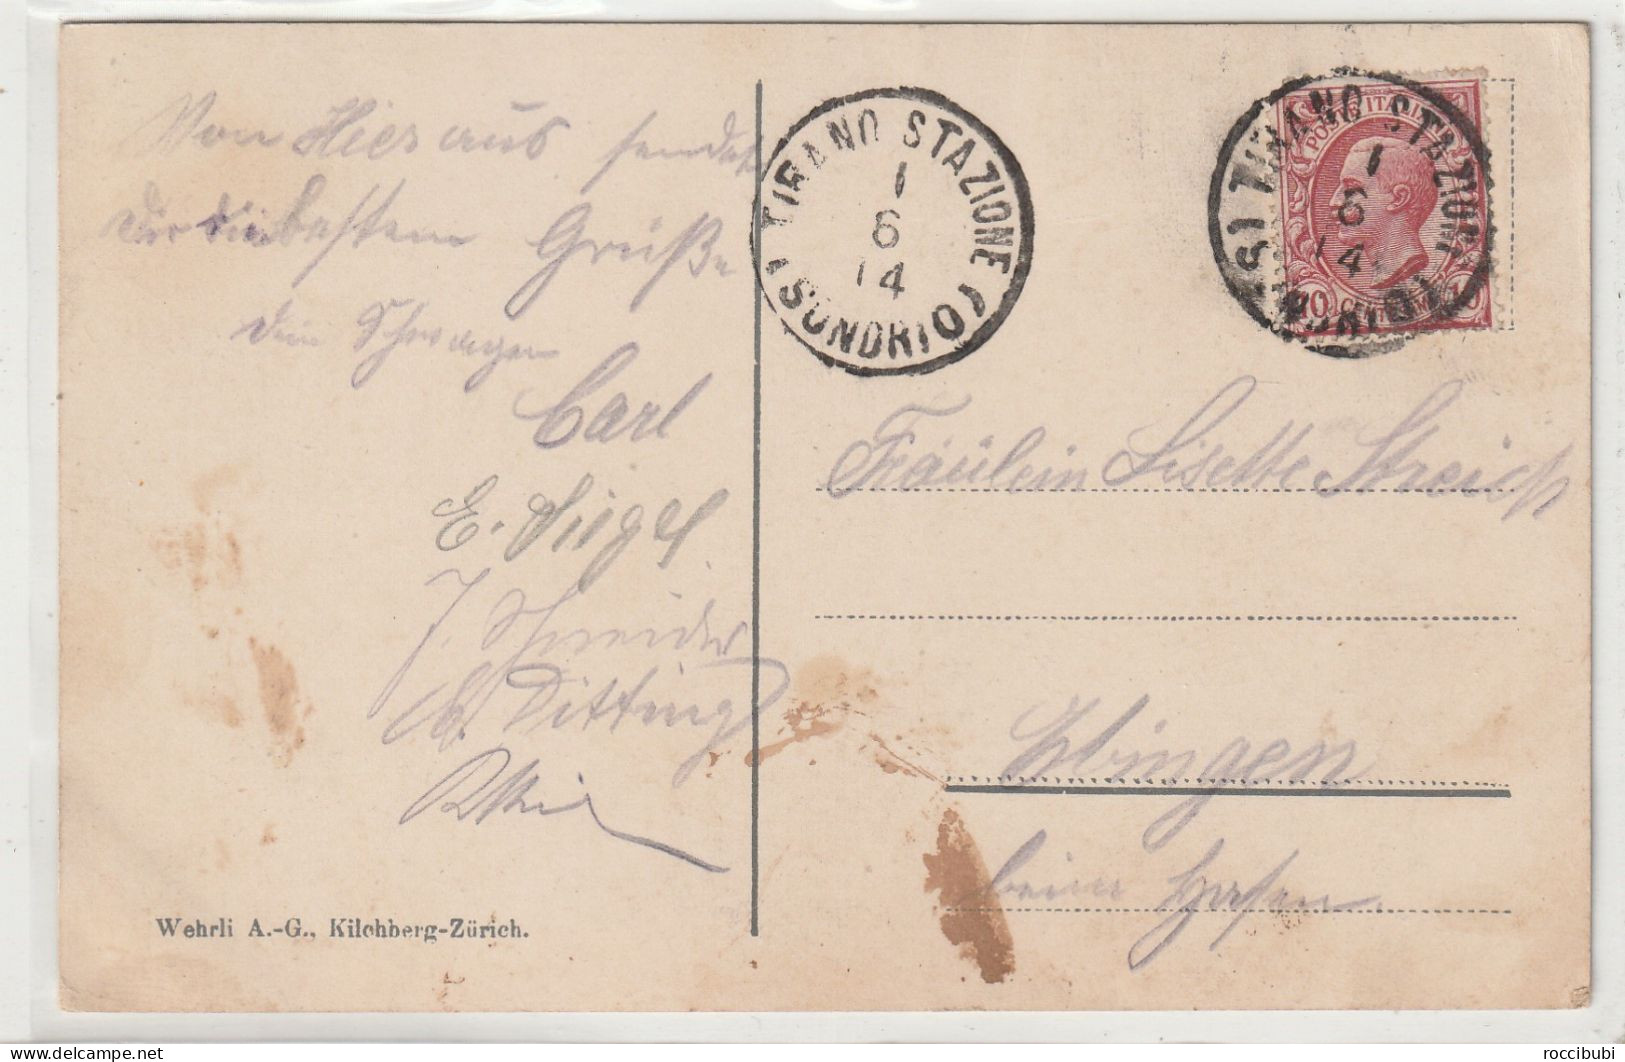 Von Hier aus sendet
dir die besten Grüße
dein Schwager
Carl
E. Siegel
J. Schneider
Ditting
Wehrli A.-G., Kilchberg-Zürich.
TIRANO STAZIONE (SONDRIO)
1
6
14
POSTE ITALIANE
10 CENTESIMI 10
TIRANO STAZIONE (SONDRIO)
1
6
14
Fräulein Lisette Streich
Ebingen
beim Hasen
www.delcampe.net
roccibubi